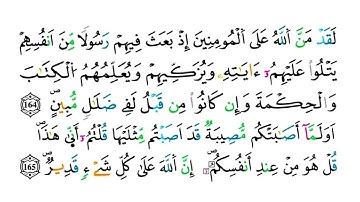 لَقَدْ مَنَّ اَللَّهُ عَلَى اَلْمُومِنِينَ إِذْ بَعَثَ فِيهِمْ رَسُولًا مِّنَ اَنفُسِهِمْ
يَتْلُوا عَلَيْهِمُۥٓ ءَايَٰتِهِۦ وَيُزَكِّيهِمْ وَيُعَلِّمُهُمُ اُلْكِتَٰبَ
وَالْحِكْمَةَ وَإِن كَانُوا مِن قَبْلُ لَفِى ضَلَٰلٍ مُّبِينٍ ۝164
اَوَلَمَّآ أَصَٰبَتْكُم مُّصِيبَةٌ قَدَ اَصَبْتُم مِّثْلَيْهَا قُلْتُمُۥٓ أَنّىٰ هَٰذَا
قُلْ هُوَ مِنْ عِندِ أَنفُسِكُمُۥٓ إِنَّ اَللَّهَ عَلَىٰ كُلِّ شَےْءٍ قَدِيرٌ ۝165